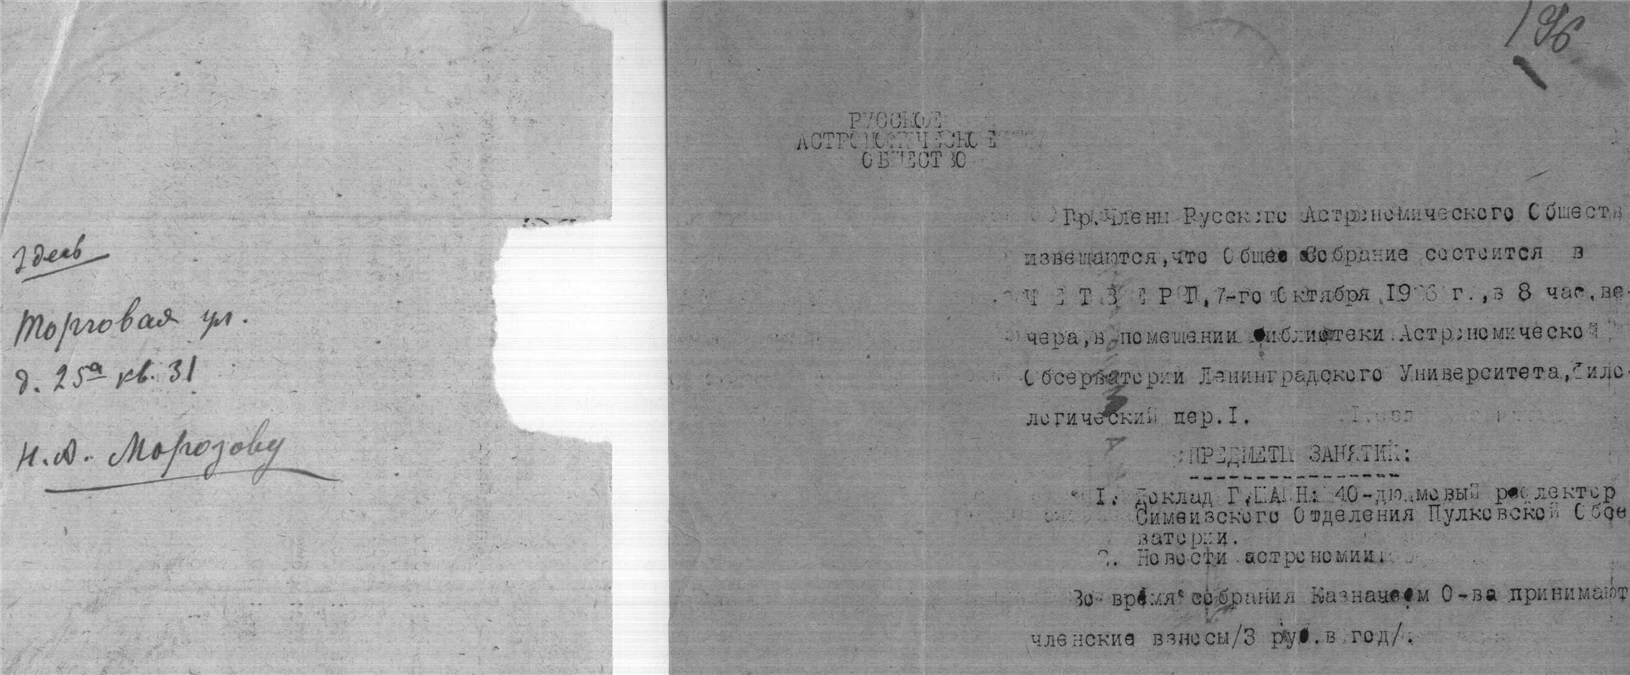 Здесь
Торговая ул.
д. 25а кв. 31
Н.А. Морозову
196
РУССКОЕ
АСТРОНОМИЧЕСКОЕ
ОБЩЕСТВО
Гр.Члены Русского Астрономического Обществ
извещаются,что Общее Собрание состоится в
Ч Е Т В Е Р Г, 7-го Октября 1926 г.,в 8 час.ве-
чера,в помещении Библиотеки Астрономической
Обсерватории Ленинградского Университета,Фило-
логический пер.I.
ПРЕДМЕТЫ ЗАНЯТИЙ:
I. Доклад Г.ШАЙН: 40-дюймовый рефлектор
Симеизского Отделения Пулковской Обсе
ватории.
2. Новости астрономии.
Во время собрания Казначеем О-ва принимают
членские взносы/3 руб.в год/.